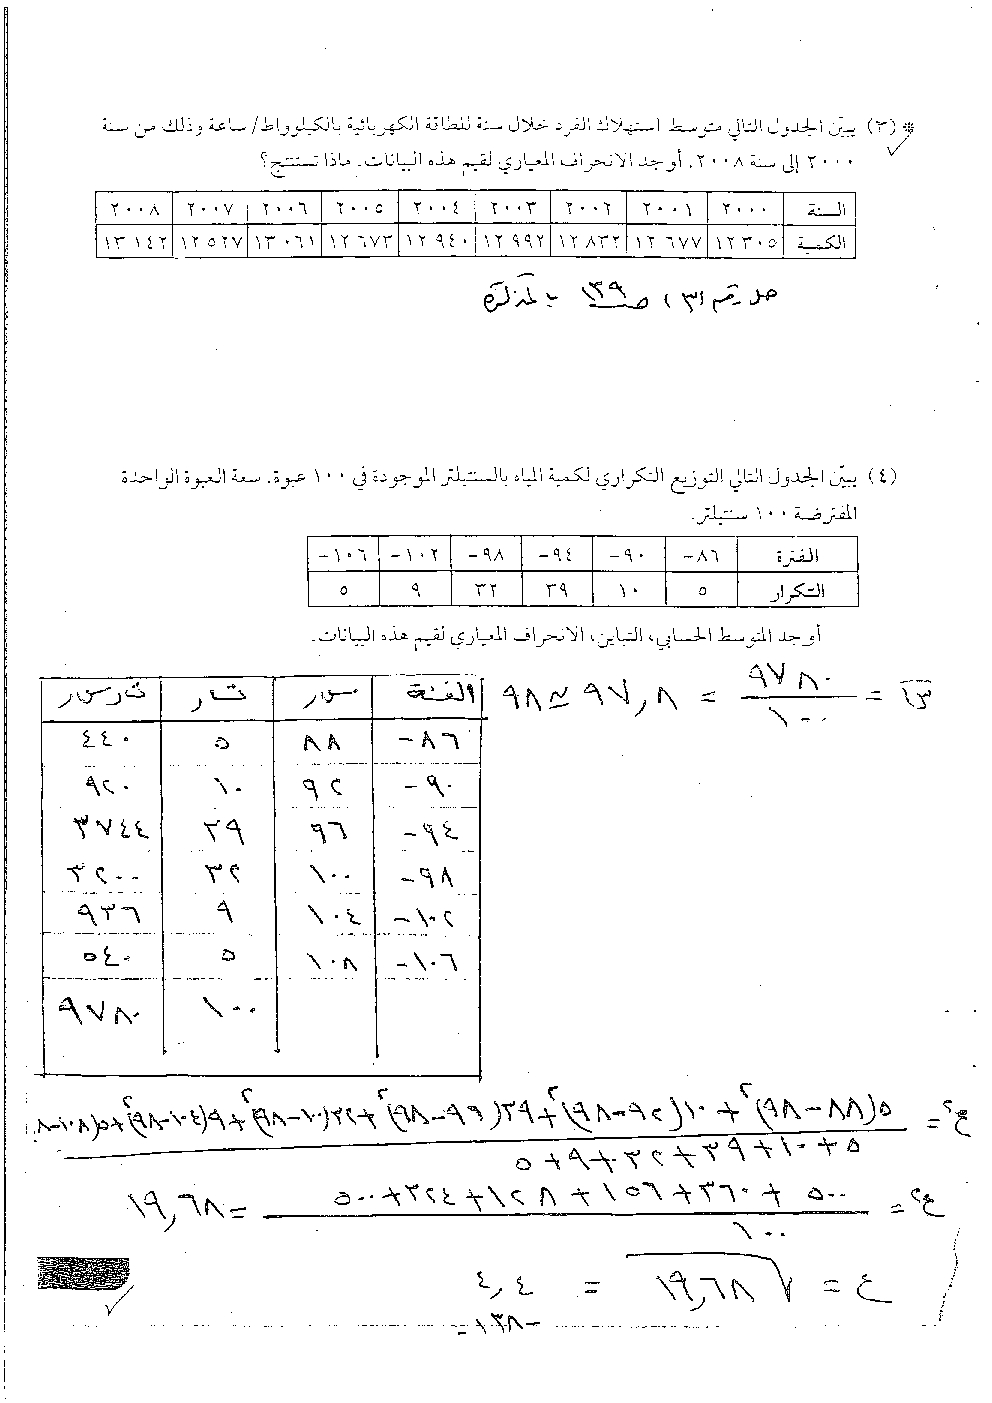 * (٣) يبيّن الجدول التالي متوسط استهلاك الفرد خلال سنة للطاقة الكهربائية بالكيلوواط/ ساعة وذلك من سنة
٢٠٠٠ إلى سنة ٢٠٠٨. أوجد الانحراف المعياري لقيم هذه البيانات. ماذا تستنتج؟
السنة ٢٠٠٠ ٢٠٠١ ٢٠٠٢ ٢٠٠٣ ٢٠٠٤ ٢٠٠٥ ٢٠٠٦ ٢٠٠٧ ٢٠٠٨
الكمية ١٢٣٠٥ ١٢٦٧٧ ١٢٨٣٢ ١٢٩٩٢ ١٢٩٤٠ ١٢٦٧٣ ١٣٠٦١ ١٢٥٢٧ ١٣١٤٢
حل رقم (٣) صـ ١٣٩ بالمذكرة
(٤) يبيّن الجدول التالي التوزيع التكراري لكمية المياه بالسنتيلتر الموجودة في ١٠٠ عبوة. سعة العبوة الواحدة
المفترضة ١٠٠ سنتيلتر.
الفترة ٨٦- ٩٠- ٩٤- ٩٨- ١٠٢- ١٠٦-
التكرار ٥ ١٠ ٣٩ ٣٢ ٩ ٥
أوجد المتوسط الحسابي، التباين، الانحراف المعياري لقيم هذه البيانات.
س̄ = ٩٧٨٠ / ١٠٠ = ٩٧,٨ ≃ ٩٨
الفئة س ر ت ر ت ر س ر
٨٦- ٨٨ ٥ ٤٤٠
٩٠- ٩٢ ١٠ ٩٢٠
٩٤- ٩٦ ٣٩ ٣٧٤٤
٩٨- ١٠٠ ٣٢ ٣٢٠٠
١٠٢- ١٠٤ ٩ ٩٣٦
١٠٦- ١٠٨ ٥ ٥٤٠
١٠٠ ٩٧٨٠
ع٢ = ٥(٨٨-٩٨)٢ + ١٠(٩٢-٩٨)٢ + ٣٩(٩٦-٩٨)٢ + ٣٢(١٠٠-٩٨)٢ + ٩(١٠٤-٩٨)٢ + ٥(١٠٨-٨
٥+١٠+٣٩+٣٢+٩+٥
ع٢ = ٥٠٠ + ٣٦٠ + ١٥٦ + ١٢٨ + ٣٢٤ + ٥٠٠
١٠٠
= ١٩,٦٨
ع = √١٩,٦٨ = ٤,٤
-١٣٨=